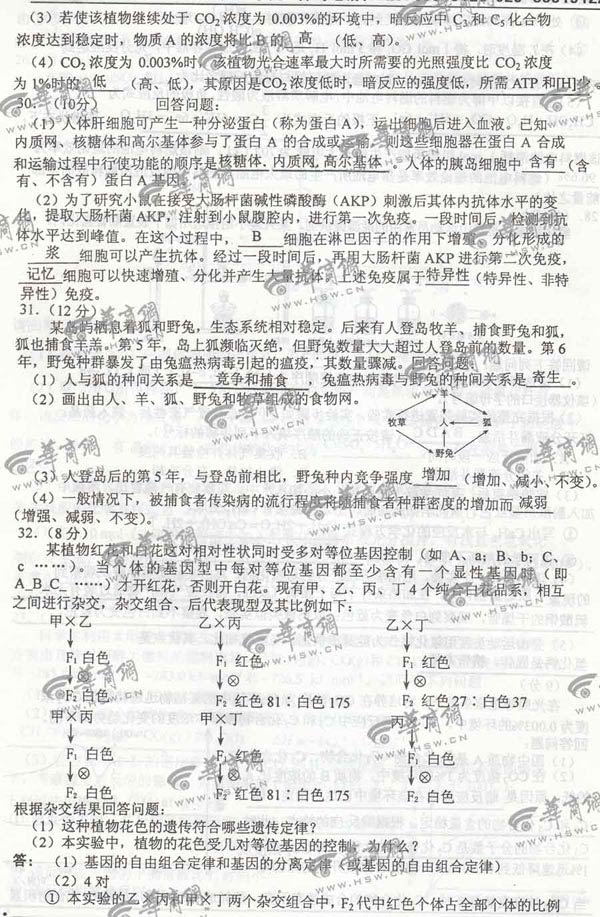 (3) 若使该植物继续处于 CO₂浓度为 0.003%的环境中，暗反应中 C₃和 C₅化合物
浓度达到稳定时，物质 A 的浓度将比 B 的 高 (低、高)。
(4) CO₂浓度为 0.003%时，该植物光合速率最大时所需要的光照强度比 CO₂浓度
为 1%时的 低 (高、低)，其原因是CO₂浓度低时，暗反应的强度低，所需 ATP 和[H]少
30. (10分) 回答问题：
(1) 人体肝细胞可产生一种分泌蛋白（称为蛋白 A)，运出细胞后进入血液。已知
内质网、核糖体和高尔基体参与了蛋白 A 的合成或运输，则这些细胞器在蛋白 A 合成
和运输过程中行使功能的顺序是核糖体、内质网、高尔基体。人体的胰岛细胞中 含有 (含
有、不含有) 蛋白 A 基因。
(2) 为了研究小鼠在接受大肠杆菌碱性磷酸酶（AKP）刺激后其体内抗体水平的变
化，提取大肠杆菌 AKP，注射到小鼠腹腔内，进行第一次免疫。一段时间后，检测到抗
体水平达到峰值。在这个过程中， B 细胞在淋巴因子的作用下增殖、分化形成的
浆 细胞可以产生抗体。经过一段时间后，再用大肠杆菌 AKP 进行第二次免疫，
记忆 细胞可以快速增殖、分化并产生大量抗体。上述免疫属于特异性（特异性、非特
异性）免疫。
31. (12 分)
某岛屿栖息着狐和野兔，生态系统相对稳定。后来有人登岛牧羊、捕食野兔和狐，
狐也捕食羊羔。第 5 年，岛上狐濒临灭绝，但野兔数量大大超过人登岛前的数量。第 6
年，野兔种群暴发了由兔瘟热病毒引起的瘟疫，其数量骤减。回答问题：
(1) 人与狐的种间关系是 竞争和捕食 ，兔瘟热病毒与野兔的种间关系是 寄生 。
(2) 画出由人、羊、狐、野兔和牧草组成的食物网。
羊
牧草 人 狐
野兔
(3) 人登岛后的第 5 年，与登岛前相比，野兔种内竞争强度 增加 (增加、减小、不变)。
(4) 一般情况下，被捕食者传染病的流行程度将随捕食者种群密度的增加而 减弱
(增强、减弱、不变)。
32. (8 分)
某植物红花和白花这对相对性状同时受多对等位基因控制（如 A、a；B、b；C、
c ……)。当个体的基因型中每对等位基因都至少含有一个显性基因时（即
A_B_C_ ……）才开红花，否则开白花。现有甲、乙、丙、丁 4 个纯合白花品系，相互
之间进行杂交，杂交组合、后代表现型及其比例如下：
甲×乙 乙×丙 乙×丁
F₁ 白色 F₁ 红色 F₁ 红色
⊗ ⊗ ⊗
F₂ 白色 F₂ 红色 81：白色 175 F₂ 红色 27：白色 37
甲×丙 甲×丁 丙×丁
F₁ 白色 F₁ 红色 F₁ 白色
⊗ ⊗ ⊗
F₂ 白色 F₂ 红色 81：白色 175 F₂ 白色
根据杂交结果回答问题：
(1) 这种植物花色的遗传符合哪些遗传定律？
(2) 本实验中，植物的花色受几对等位基因的控制，为什么？
答： (1) 基因的自由组合定律和基因的分离定律（或基因的自由组合定律）
(2) 4 对
① 本实验的乙×丙和甲×丁两个杂交组合中，F₂ 代中红色个体占全部个体的比例